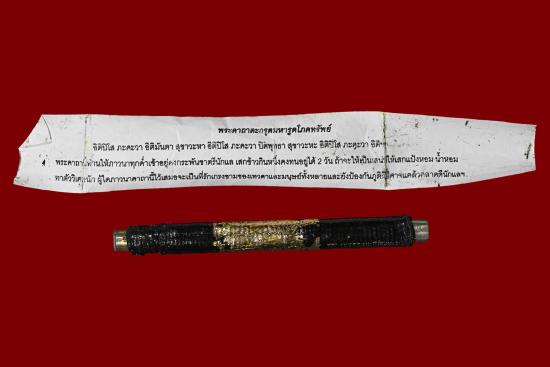 พระคาถาตะกรุดมหารูดโภคทรัพย์
อิติปิโส ภะคะวา อิติมันตา สุขาวะหา อิติปิโส ภะคะวา ปิดพุทธา สุขาวะหะ อิติปิโส ภะคะวา อิติฯ
พระคาถาท่านให้ภาวนาทุกค่ำเช้าอยู่คงกระพันชาตรีนักแล เสกข้าวกินหนึ่งคงทนอยู่ได้ 2 วัน ถ้าจะให้เป็นเสน่ห์ให้เสกแป้งหอม น้ำหอม
ทาตัววิเศษนัก ผู้ใดภาวนาคาถานี้ไว้เสมอจะเป็นที่รักเกรงขามของเทวดาและมนุษย์ทั้งหลายและยังป้องกันภูติผีปีศาจแคล้วคลาดดีนักแลฯ